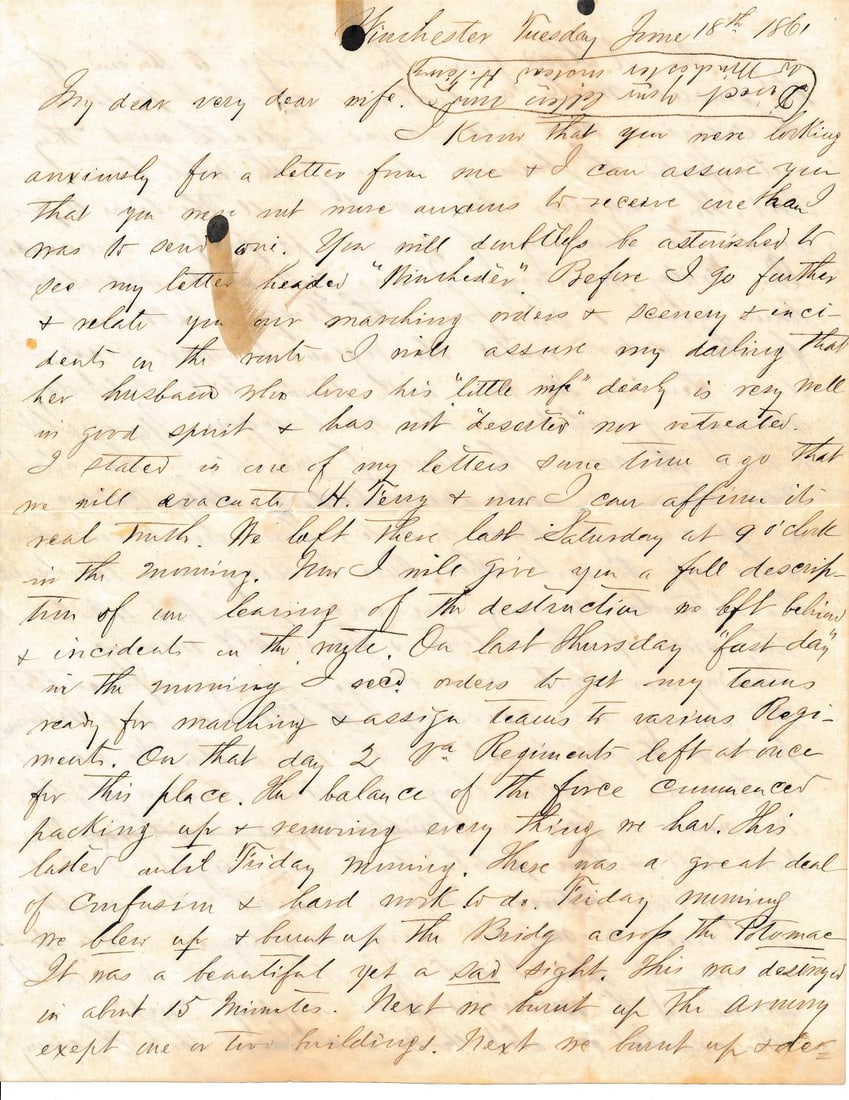 Winchester Tuesday June 18th 1861
Direct your letters
to Winchester instead H. Ferry
My dear very dear wife.
I know that you were looking
anxiously for a letter from me & I can assure you
that you were not more anxious to receive one than I
was to send one. You will doubtless be astonished to
see my letter headed "Winchester". Before I go further
& relate you our marching orders & scenery & inci-
dents on the route I will assure my darling that
her husband who loves his "little wife" dearly is very well
in good spirit & has not "deserted" nor retreated.
I stated in one of my letters some time ago that
we will evacuate H. Ferry & now I can affirm its
real truth. We left there last Saturday at 9 o'clock
in the morning. Now I will give you a full descrip-
tion of our leaving of the destruction we left behind
& incidents on the route. On last Thursday "fast day"
in the morning I recd. orders to get my teams
ready for marching & assign teams to various Regi-
ments. On that day 2 Va Regiments left at once
for this place. The balance of the force commenced
packing up & removing every thing we had. This
lasted until Friday morning. There was a great deal
of confusion & hard work to do. Friday morning
we blew up & burnt up the Bridg across the Potomac
It was a beautiful yet a sad sight. This was destroyed
in about 15 Minutes. Next we burnt up the armory
exept one or two buildings. Next we burnt up & des=